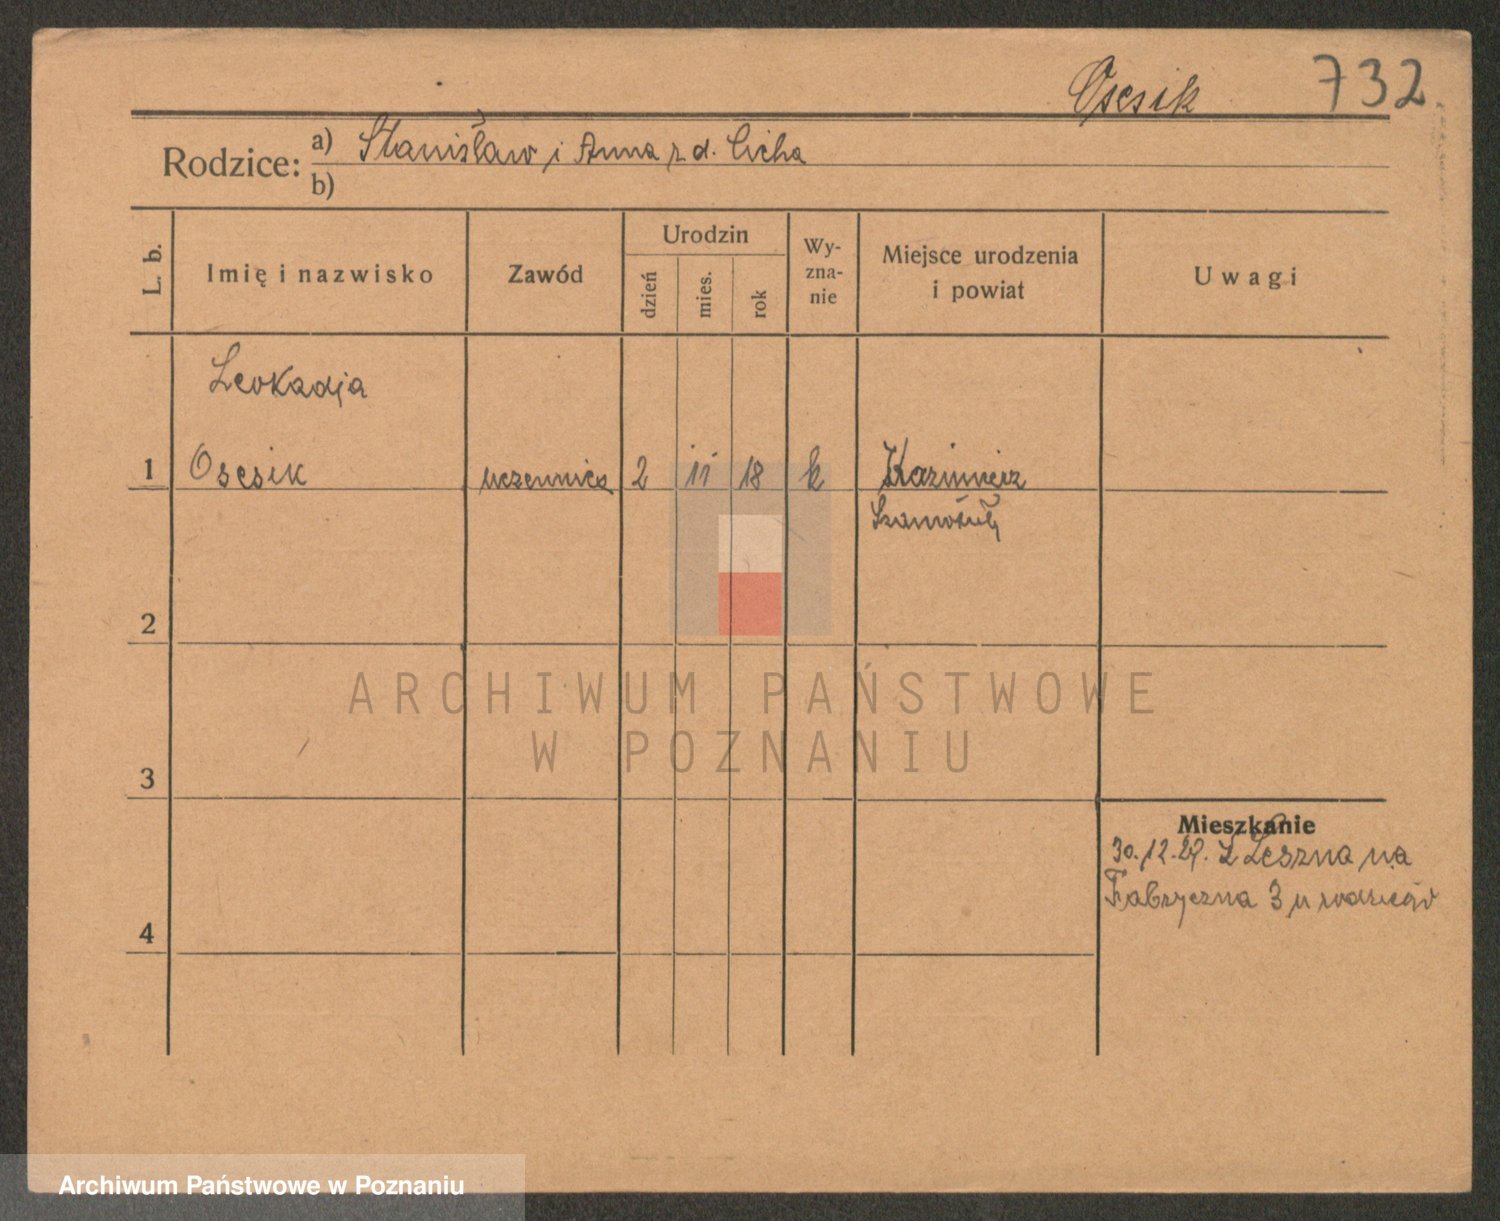 Osesik 732
Rodzice: a) Stanisław i Anna z d. Cicha
b)
L. b. Imię i nazwisko Zawód Urodzin dzień mies. rok Wy-zna-nie Miejsce urodzenia i powiat Uwagi
Leokadja
1 Osesik uczennica 2 11 18 k Kazimierz
Szamotuły
2
ARCHIWUM PAŃSTWOWE
W POZNANIU
3
Mieszkanie
30.12.27. z Leszna na
Fabryczna 3 u rodziców
4
Archiwum Państwowe w Poznaniu